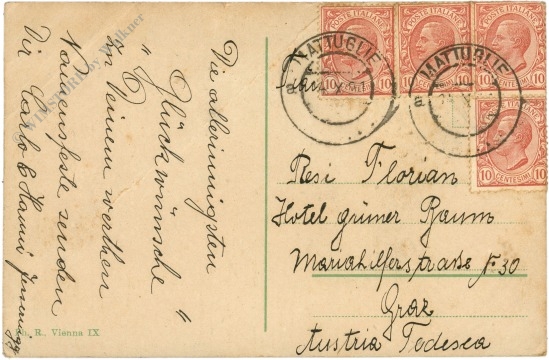 Die allerinnigsten
„Glückwünsche"
zu Deinem werthen
Namensfeste senden
Dir Carlo & Hanni
Ph. R., Vienna IX
WIMSTORE by Walkner
POSTE ITALIANE
POSTE ITALIANE
POSTE ITALIANE
10 CENTESIMI 10
10 CENTESIMI 10
10 CENTESIMI 10
10 CENTESIMI 10
MATTUGLIE
a
MATTUGLIE
a
Resi Florian
Hotel grüner Baum
Mariahilferstraße No 30
Graz
Austria Todesca